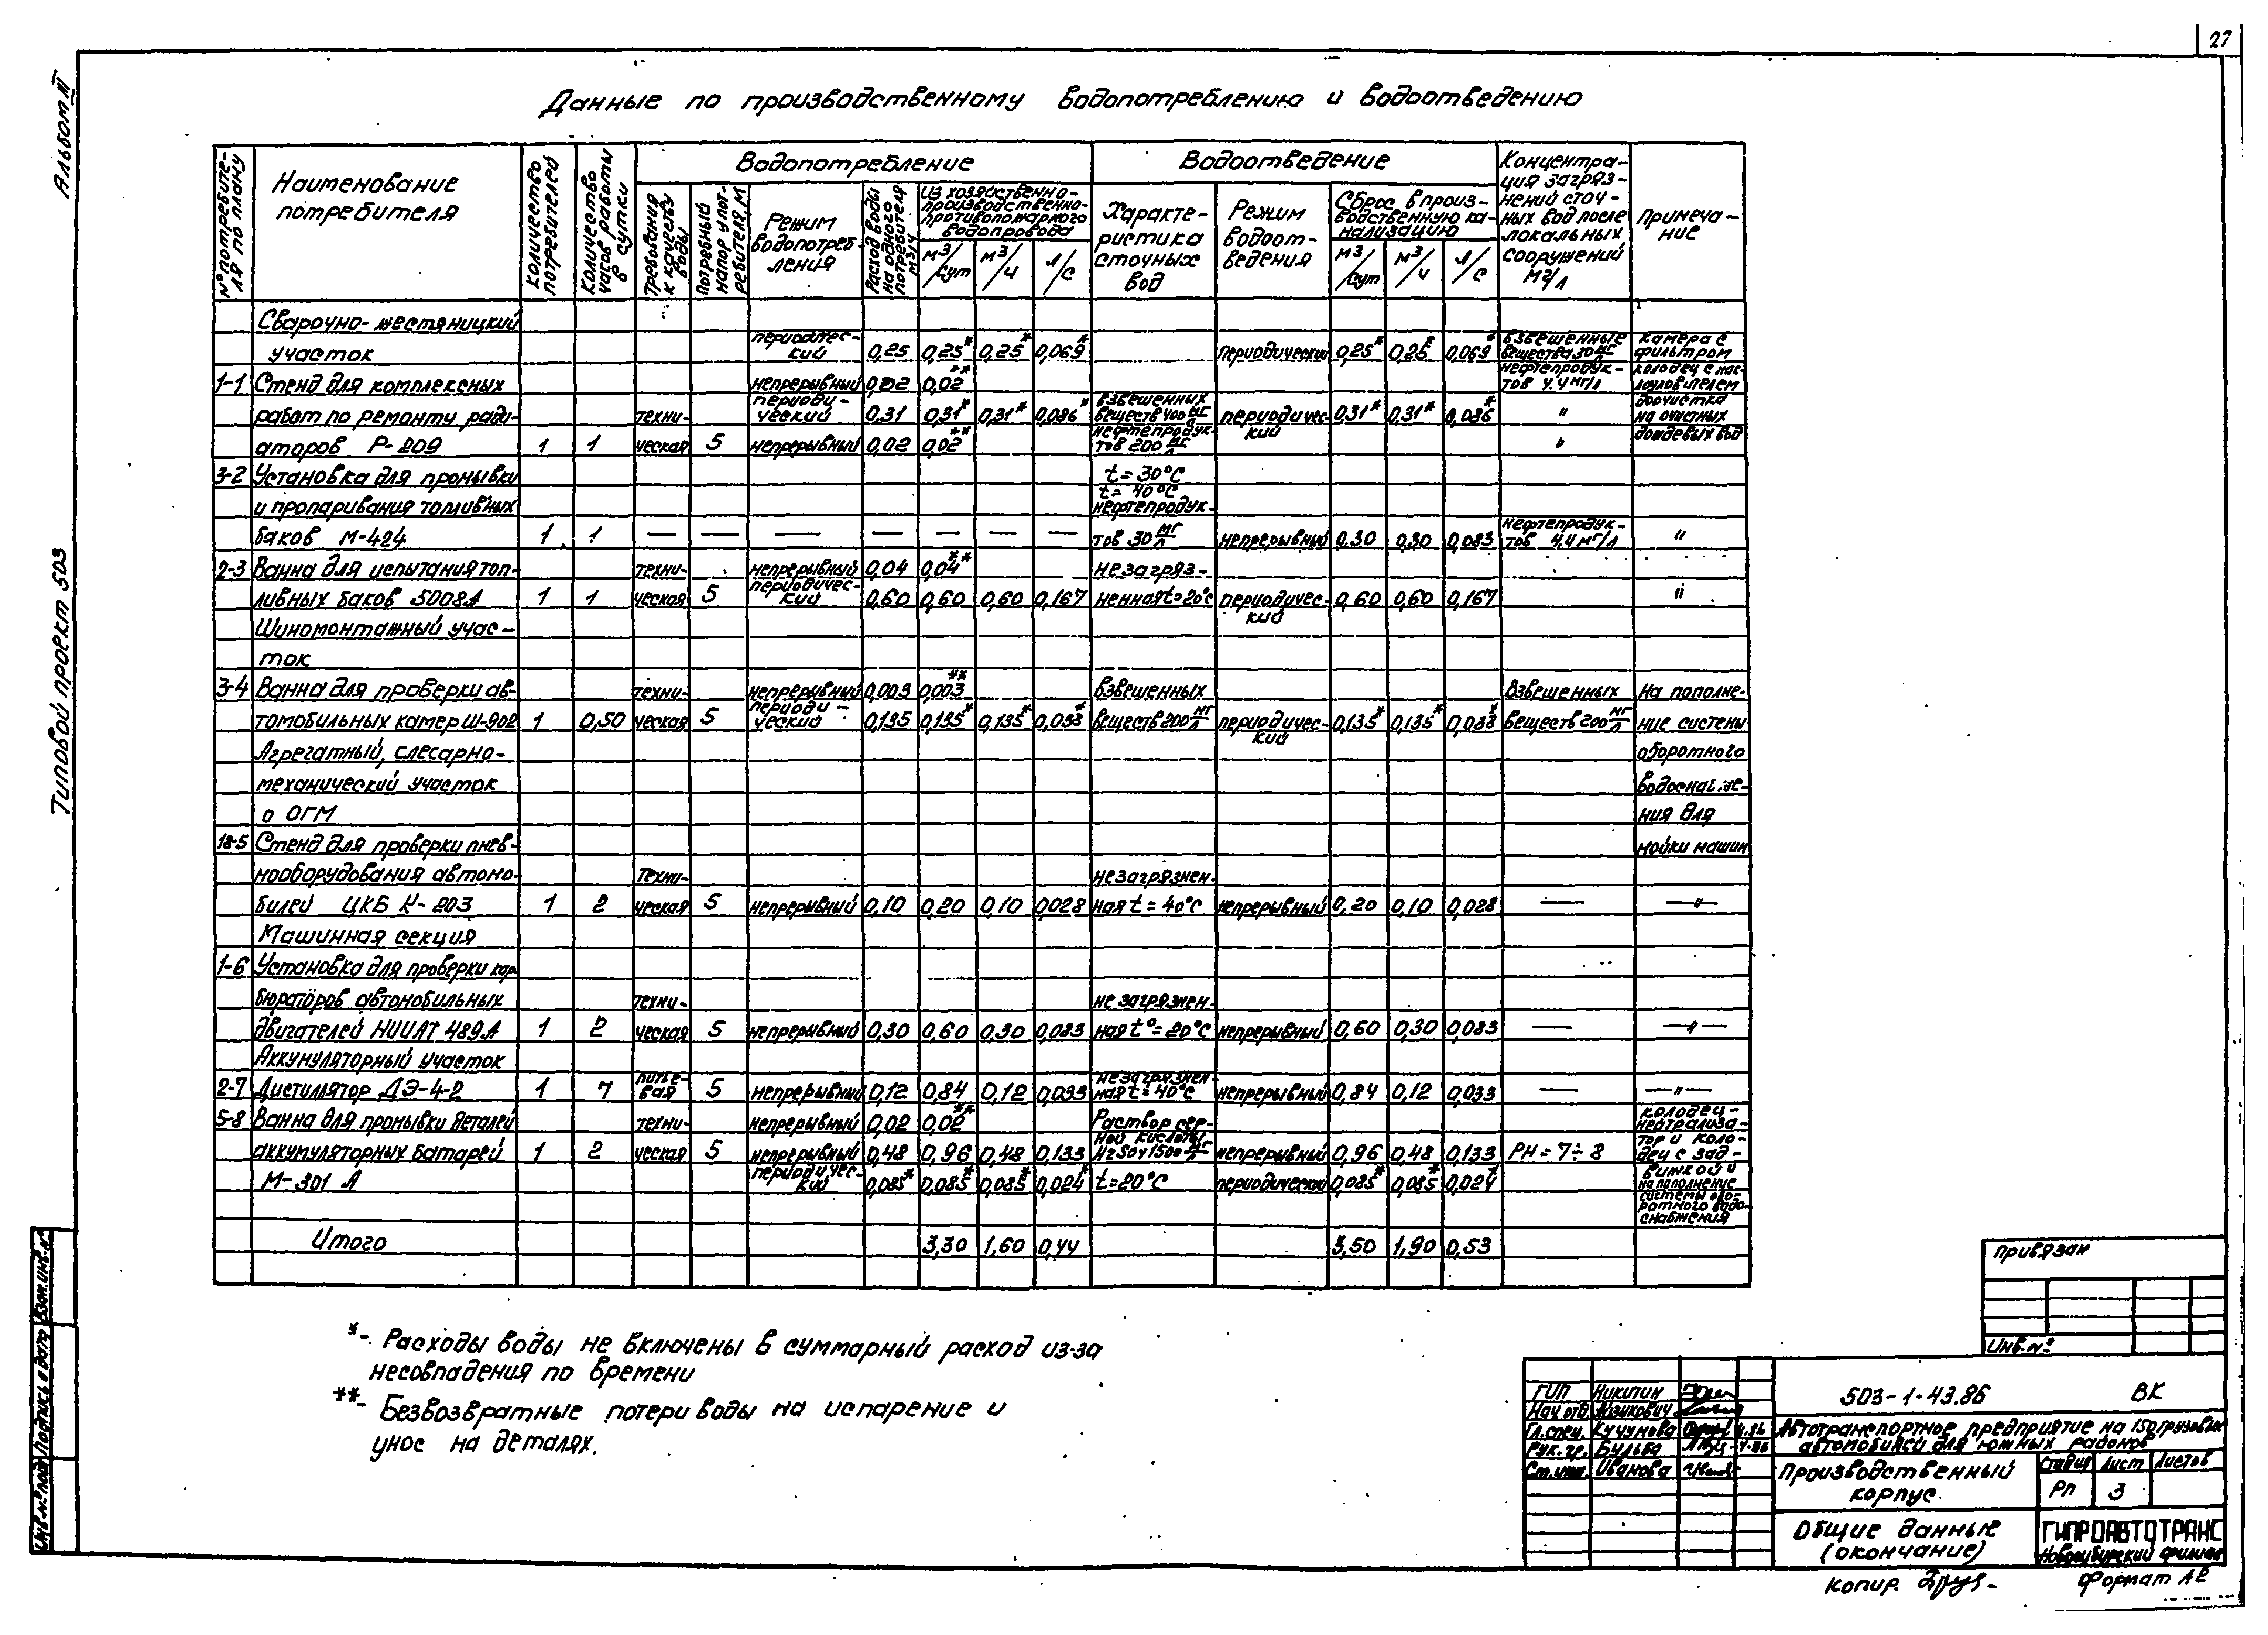 27
Альбом III
Типовой проект 503
Данные по производственному водопотреблению и водоотведению
№ потребите-
ля по плану
Наименование
потребителя
Количество
потребителей
Количество
часов работы
в сутки
Водопотребление
Требования
к качеству
воды
Потребный
напор у пот-
ребителя, м
Режим
водопотреб-
ления
Расход воды
на одного
потребителя
м3/ч
Из хозяйственно-
производственно-
противопожарного
водопровода
м3/сут
м3/ч
л/с
Водоотведение
Характе-
ристика
сточных
вод
Режим
водоот-
ведения
Сброс в произ-
водственную ка-
нализацию
м3/сут
м3/ч
л/с
Концентра-
ция загряз-
нений сточ-
ных вод после
локальных
сооружений
мг/л
Примеча-
ние
Сварочно-жестяницкий
участок периодичес-
кий 0,25 0,25* 0,25* 0,069* периодический 0,25* 0,25* 0,069* взвешенные
вещества 30 мг/л камера с
фильтром
1-1 Стенд для комплексных непрерывный 0,02 0,02** нефтепродук-
тов 4,4 мг/л колодец с мас-
лоуловителем
работ по ремонту ради- техни- периоди-
ческий 0,31 0,31* 0,31* 0,086* взвешенных
веществ 400 мг/л периодичес-
кий 0,31* 0,31* 0,086* " доочистка
на очистных
аторов Р-209 1 1 ческая 5 непрерывный 0,02 0,02** нефтепродук-
тов 200 мг/л " дождевых вод
3-2 Установка для промывки t=30°С
и пропаривания топливных t=40°С
нефтепродук-
баков М-424 1 1 — — — — — — — тов 30 мг/л непрерывный 0,30 0,30 0,083 нефтепродук-
тов 4,4 мг/л "
2-3 Ванна для испытания топ- техни- непрерывный 0,04 0,04** незагряз-
ливных баков 5008А 1 1 ческая 5 периодичес-
кий 0,60 0,60 0,60 0,167 ненная t=20°с периодичес-
кий 0,60 0,60 0,167 "
Шиномонтажный учас-
ток
3-4 Ванна для проверки ав- техни- непрерывный 0,003 0,003** взвешенных взвешенных На пополне-
томобильных камер Ш-902 1 0,50 ческая 5 периоди-
ческий 0,135 0,135* 0,135* 0,038* веществ 200 мг/л периодичес-
кий 0,135* 0,135* 0,038* веществ 200 мг/л ние системы
Агрегатный, слесарно- оборотного
механический участок водоснабже-
о ОГМ ния для
18-5 Стенд для проверки пнев- мойки машин
мооборудования автомо- техни- незагрязнен-
билей ЦКБ К-203 1 2 ческая 5 непрерывный 0,10 0,20 0,10 0,028 ная t=40°С непрерывный 0,20 0,10 0,028 — —"—
Машинная секция
1-6 Установка для проверки кар-
бюраторов автомобильных техни- незагрязнен-
двигателей НИИАТ 489А 1 2 ческая 5 непрерывный 0,30 0,60 0,30 0,083 ная t°=20°С непрерывный 0,60 0,30 0,083 — —"—
Аккумуляторный участок
2-7 Дистиллятор ДЭ-4-2 1 7 питье-
вая 5 непрерывный 0,12 0,84 0,12 0,033 незагрязнен-
ная t=40°С непрерывный 0,84 0,12 0,033 — —"—
5-8 Ванна для промывки деталей техни- непрерывный 0,02 0,02** Раствор сер- колодец-
нейтрализа-
аккумуляторных батарей 1 2 ческая 5 непрерывный 0,48 0,96 0,48 0,133 ной кислоты
H2SO4 1500 мг/л непрерывный 0,96 0,48 0,133 РН = 7÷8 тор и коло-
дец с зад-
М-301 А периодичес-
кий 0,085* 0,085* 0,085* 0,024* t=20°С периодический 0,085* 0,085* 0,024* вижкой и
на пополнение
системы обо-
ротного водо-
снабжения
Итого 3,30 1,60 0,44 3,50 1,90 0,53
*- Расходы воды не включены в суммарный расход из-за
несовпадения по времени
**- Безвозвратные потери воды на испарение и
унос на деталях.
Взам. инв. №
Подпись и дата
Инв. № подл
Привязан
Инв. №
ГИП Никитин
Нач. отд. Жизикович
Гл. спец. Кучумова 4.86
Рук. гр. Бульба 4.86
Ст. инж. Иванова
503-1-43.86 ВК
Автотранспортное предприятие на 150 грузовых
автомобилей для южных районов
Производственный
корпус
Стадия Лист Листов
РП 3
Общие данные
(окончание)
ГИПРОАВТОТРАНС
Новосибирский филиал
Копир.
Формат А2